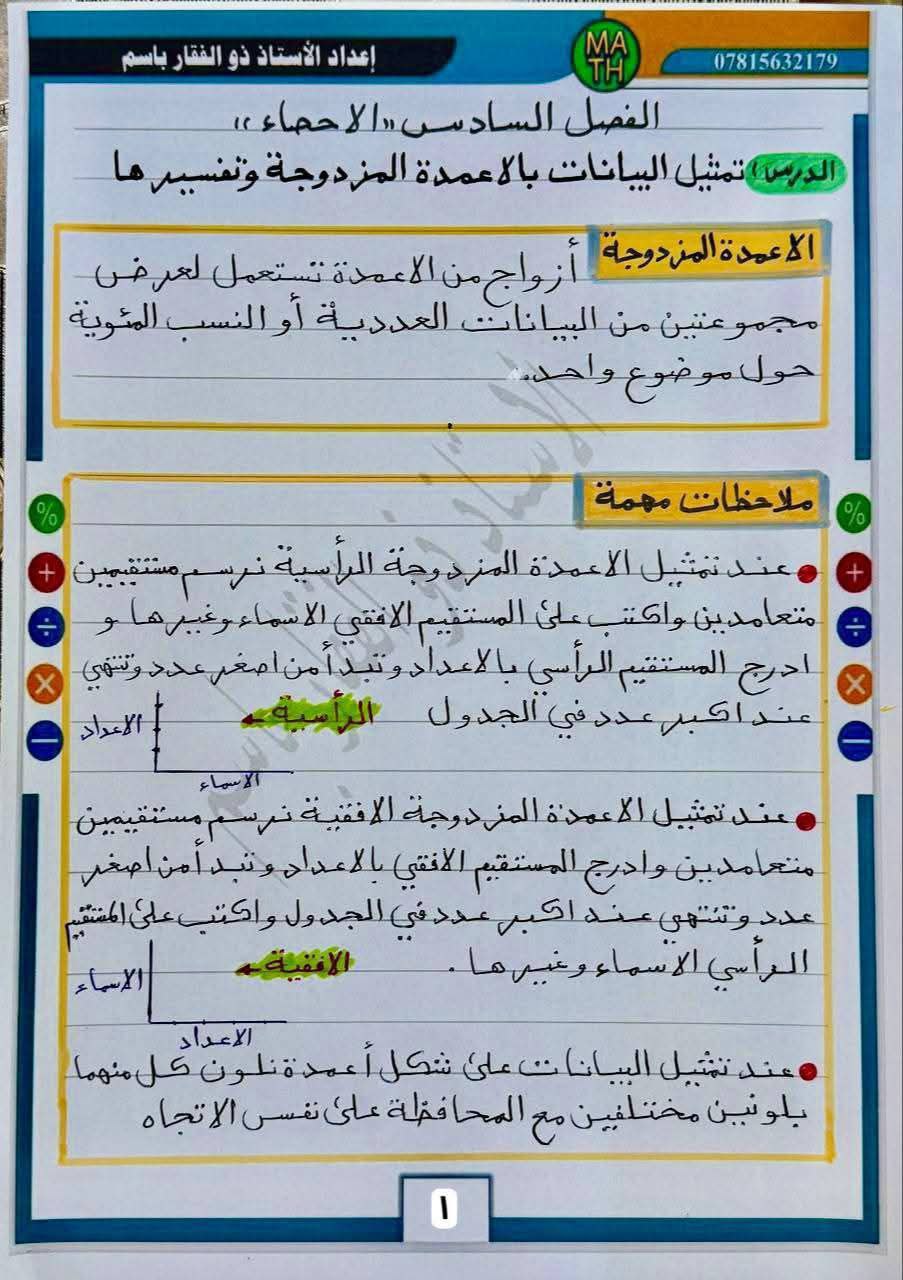 إعداد الأستاذ ذو الفقار باسم
MA
TH
07815632179
الفصل السادس "الاحصاء"
الدرس ١ تمثيل البيانات بالاعمدة المزدوجة وتفسيرها
الاعمدة المزدوجة
أزواج من الاعمدة تستعمل لعرض
مجموعتين من البيانات العددية أو النسب المئوية
حول موضوع واحد.
ملاحظات مهمة
% %
عند تمثيل الاعمدة المزدوجة الرأسية نرسم مستقيمين
+ +
متعامدين واكتب على المستقيم الافقي الاسماء وغيرها و
÷ ÷
ادرج المستقيم الرأسي بالاعداد وتبدأ من اصغر عدد وتنتهي
× ×
عند اكبر عدد في الجدول
الرأسية
− −
الاعداد
الاسماء
عند تمثيل الاعمدة المزدوجة الافقية نرسم مستقيمين
متعامدين وادرج المستقيم الافقي بالاعداد وتبدأ من اصغر
عدد وتنتهي عند اكبر عدد في الجدول واكتب على المستقيم
الرأسي الاسماء وغيرها.
الافقية
الاسماء
الاعداد
عند تمثيل البيانات على شكل أعمدة نلون كل منهما
بلونين مختلفين مع المحافظة على نفس الاتجاه
الاستاذ ذو الفقار باسم
١